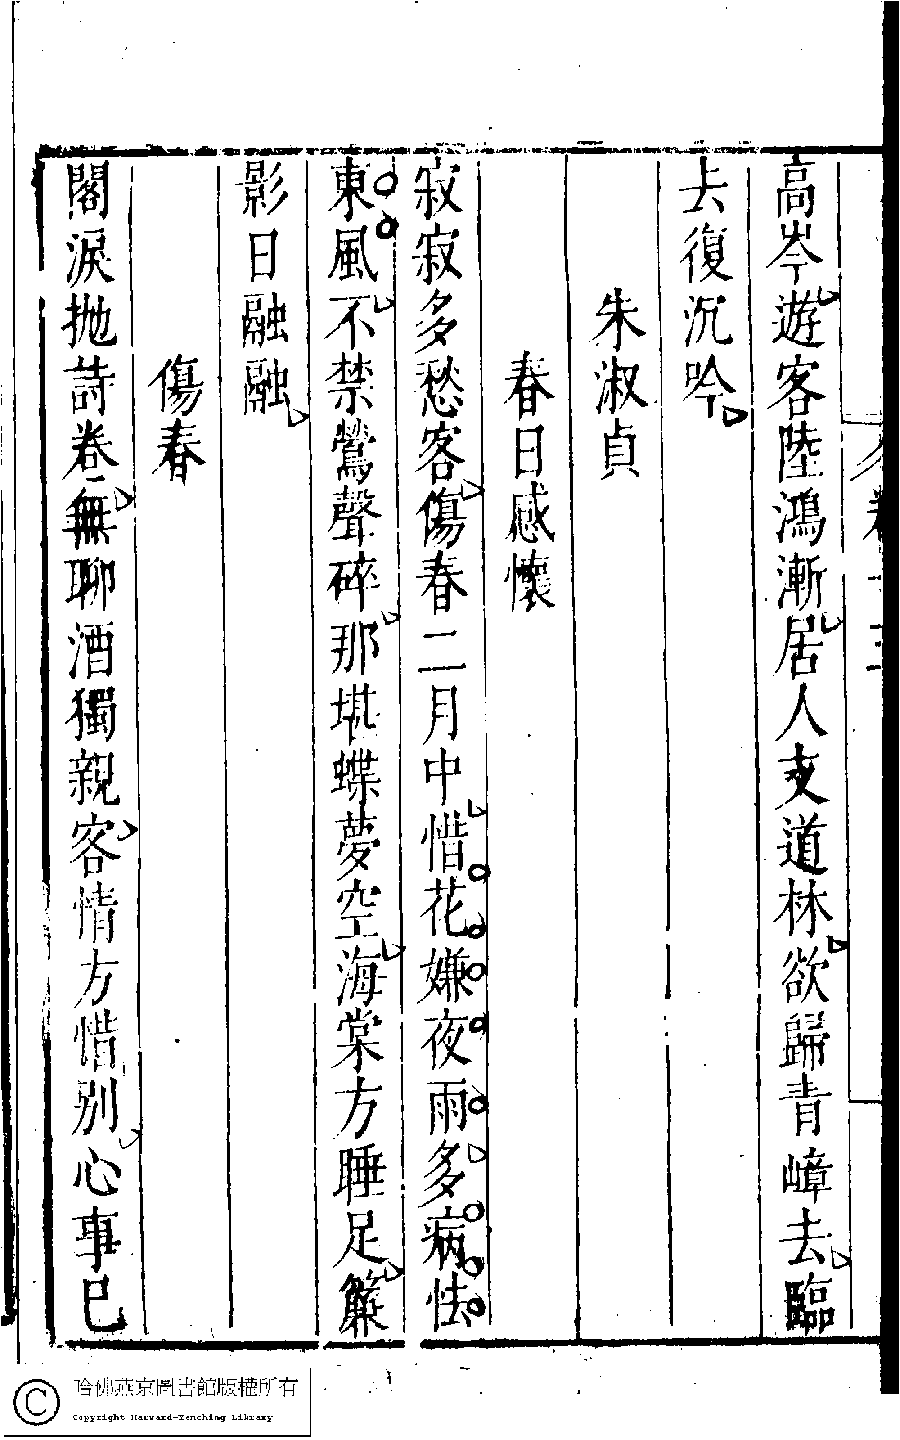 高岑遊客陸鴻漸居人支道林欲歸青嶂去臨
去復沉吟
朱淑貞
春日感懷
寂寂多愁客傷春二月中惜花嫌夜雨多病怯
東風不禁鶯聲碎那堪蝶夢空海棠方睡足簾
影日融融
傷春
閣淚拋詩卷無聊酒獨親客情方惜別心事已
哈佛燕京圖書館版權所有
Copyright Harvard-Yenching Library